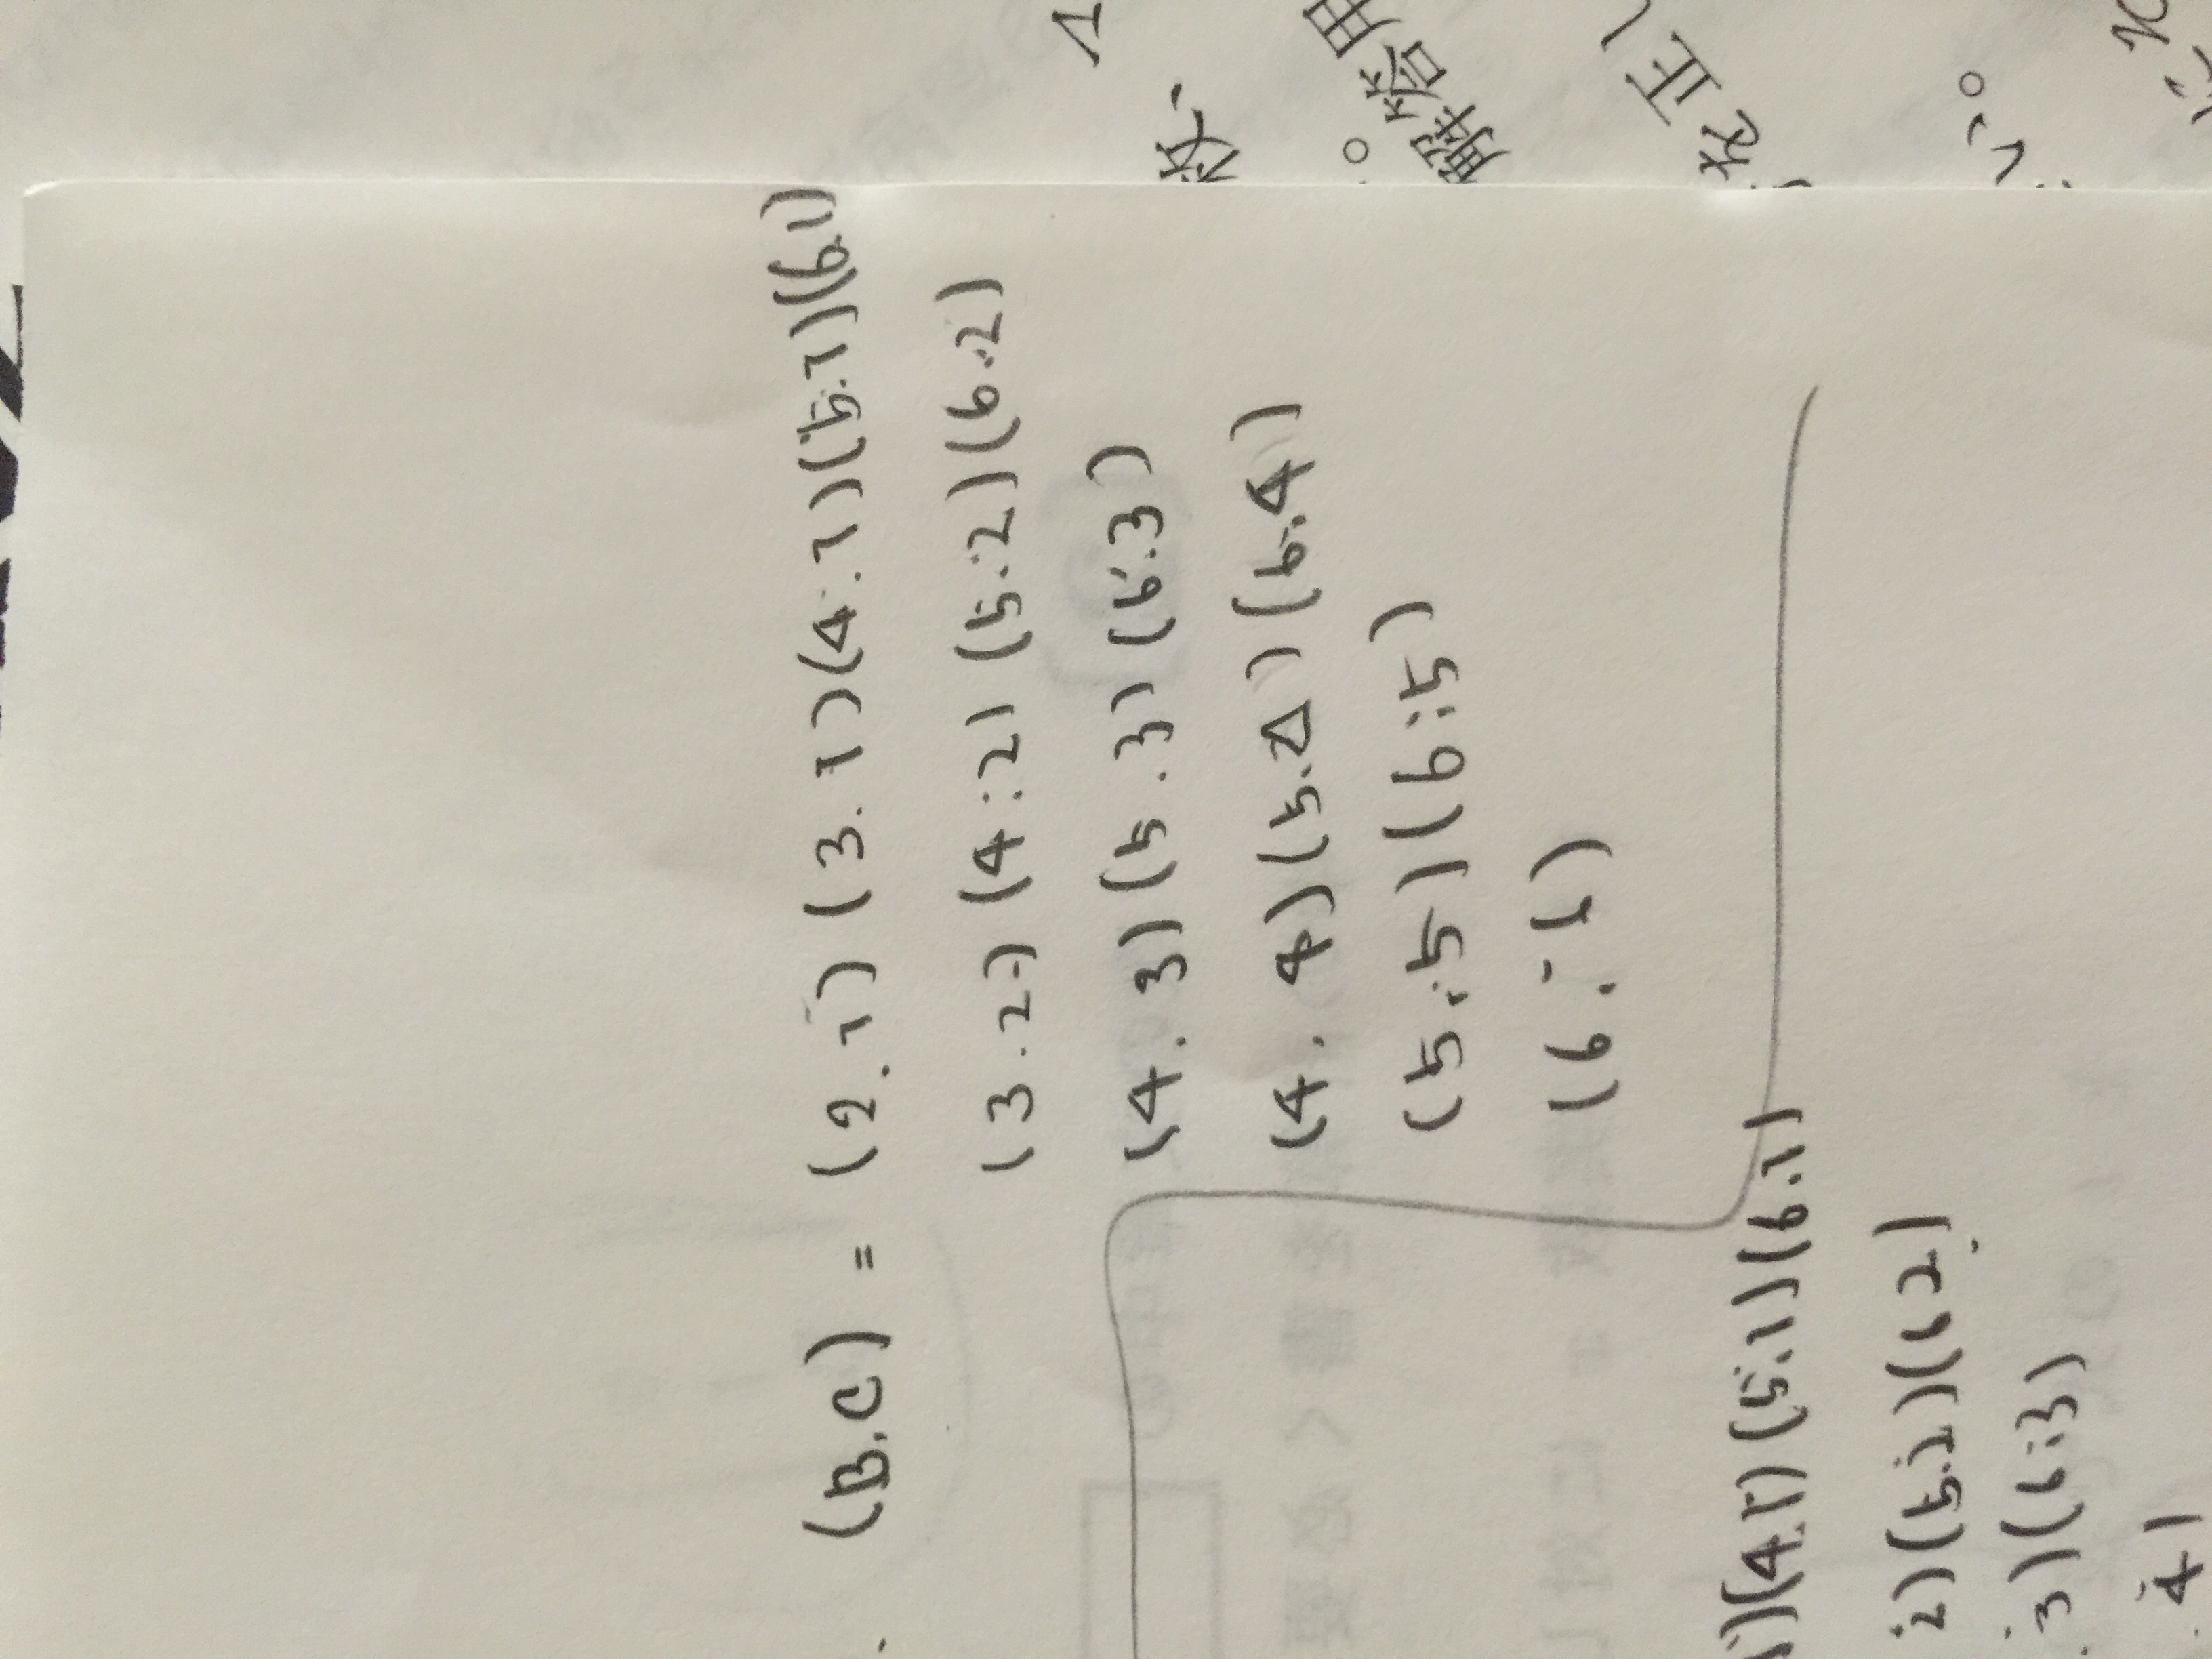 (B.C) = (2.1) (3.1) (4.1) (5.1) (6.1)
(3.2) (4.2) (5.2) (6.2)
(4.3) (5.3) (6.3)
(4.4) (5.4) (6.4)
(5.5) (6.5)
(6.1)
1)(4.1) (5.1) (6.1)
2) (5.2) (6 2)
3) (6.3)
4)
解答用
正し
い。